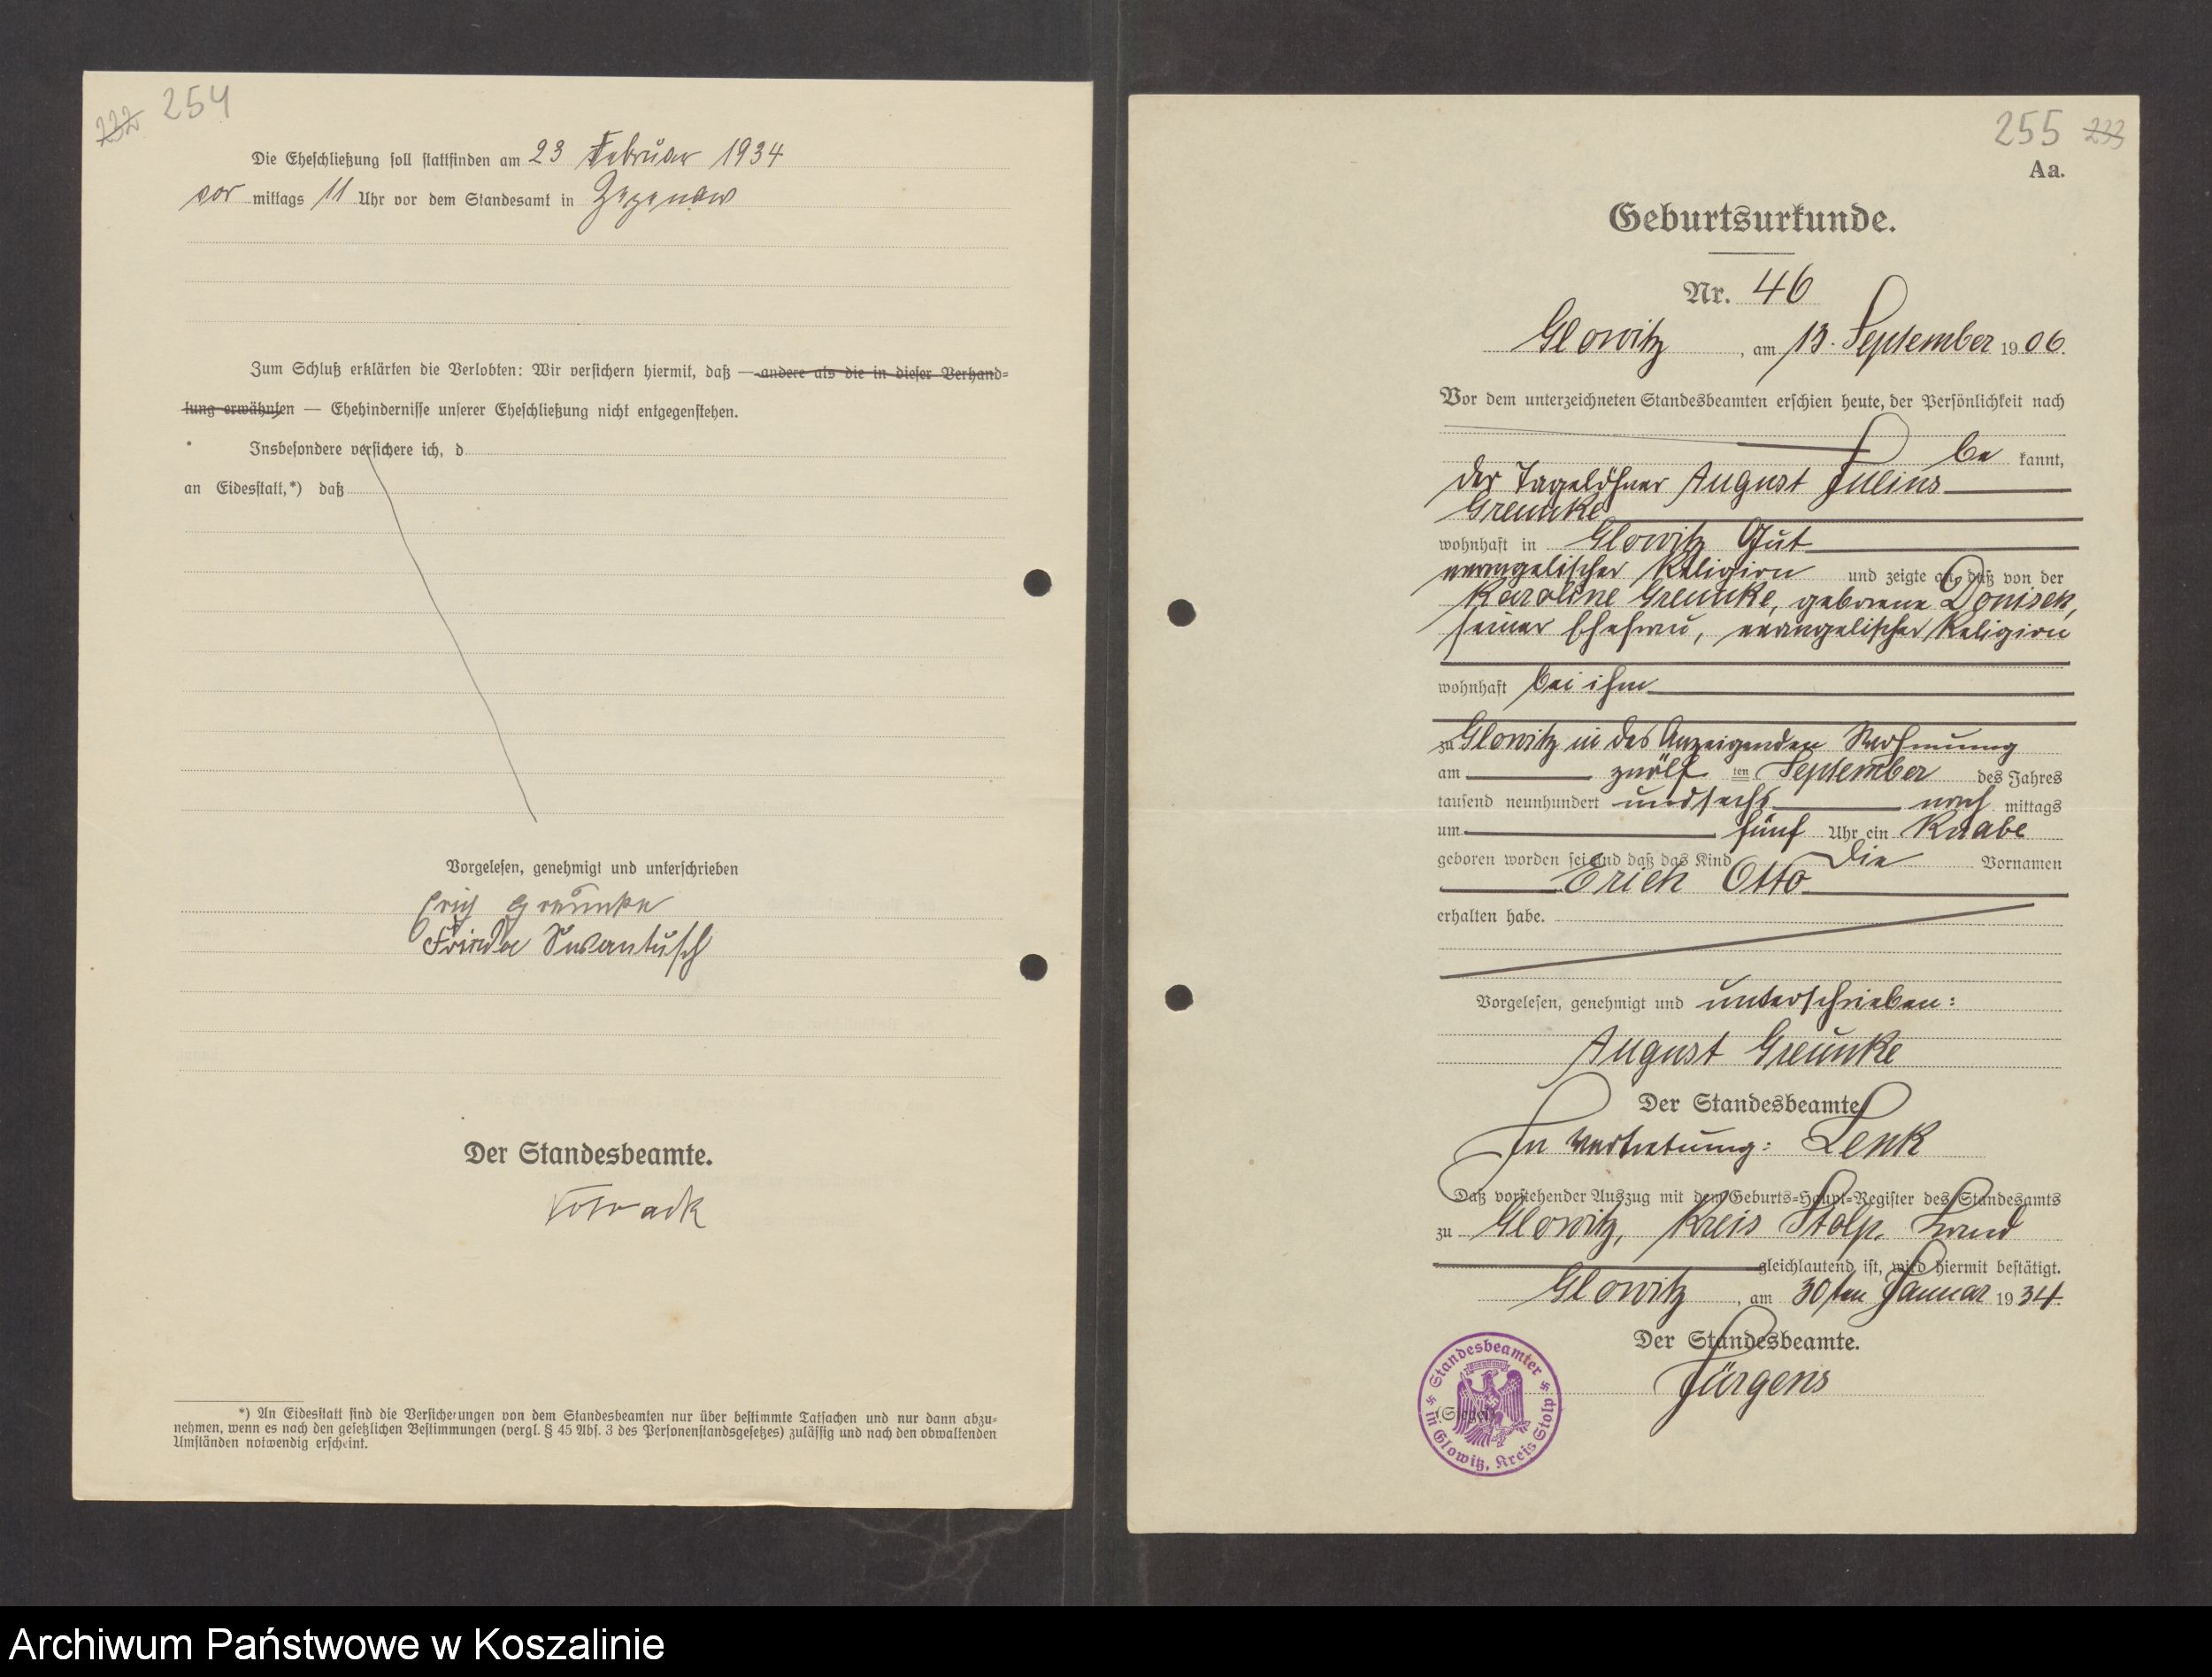 232 254
Die Eheschließung soll stattfinden am 23 Februar 1934
vor mittags 11 Uhr vor dem Standesamt in Zezenow
Zum Schluß erklärten die Verlobten: Wir versichern hiermit, daß — andere als die in dieser Verhand-
lung erwähnten — Ehehindernisse unserer Eheschließung nicht entgegenstehen.
* Insbesondere versichere ich, d
an Eidesstatt,*) daß
Vorgelesen, genehmigt und unterschrieben
Erich Greunke
Frieda Swantusch
Der Standesbeamte.
*) An Eidesstatt sind die Versicherungen von dem Standesbeamten nur über bestimmte Tatsachen und nur dann abzu-
nehmen, wenn es nach den gesetzlichen Bestimmungen (vergl. § 45 Abs. 3 des Personenstandsgesetzes) zulässig und nach den obwaltenden
Umständen notwendig erscheint.
255 233
Aa.
Geburtsurkunde.
Nr. 46
Glowitz, am 13. September 1906.
Vor dem unterzeichneten Standesbeamten erschien heute, der Persönlichkeit nach
be kannt,
der Tagelöhner August Julius
Greunke
wohnhaft in Glowitz Gut
evangelischer Religion und zeigte an, daß von der
Karoline Greunke, geborene Donisch,
seiner Ehefrau, evangelischer Religion
wohnhaft bei ihm
zu Glowitz in des Anzeigenden Wohnung
am zwölf ten September des Jahres
tausend neunhundert und sechs nach mittags
um fünf Uhr ein Knabe
geboren worden sei und daß das Kind die Vornamen
Erich Otto
erhalten habe.
Vorgelesen, genehmigt und unterschrieben:
August Greunke
Der Standesbeamte
In Vertretung: Lenk
Daß vorstehender Auszug mit dem Geburts-Haupt-Register des Standesamts
zu Glowitz, Kreis Stolp. Land
gleichlautend ist, wird hiermit bestätigt.
Glowitz, am 30ten Januar 1934.
Der Standesbeamte.
Jürgens
(Siegel)
Standesbeamter in Glowitz, Kreis Stolp
Archiwum Państwowe w Koszalinie